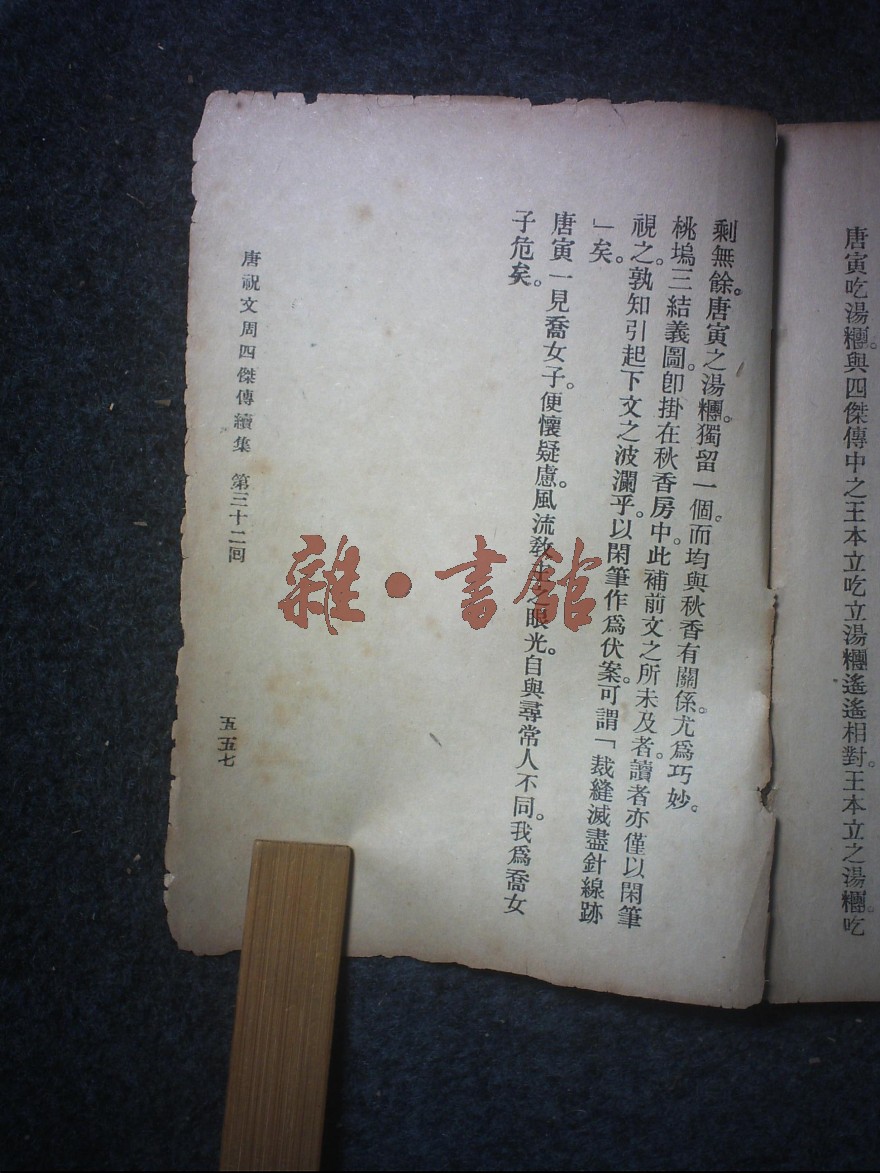 唐寅吃湯糰。與四傑傳中之王本立吃立湯糰遙遙相對。王本立之湯糰。吃
剩無餘。唐寅之湯糰。獨留一個。而均與秋香有關係。尤爲巧妙。
桃塢三結義圖。卽掛在秋香房中。此補前文之所未及者。讀者亦僅以閑筆
視之。孰知引起下文之波瀾乎。以閑筆作爲伏案。可謂「裁縫滅盡針線跡
」矣。
唐寅一見喬女子。便懷疑慮。風流敎主之眼光。自與尋常人不同。我爲喬女
子危矣。
唐祝文周四傑傳續集 第三十二回
五五七
雜·書館